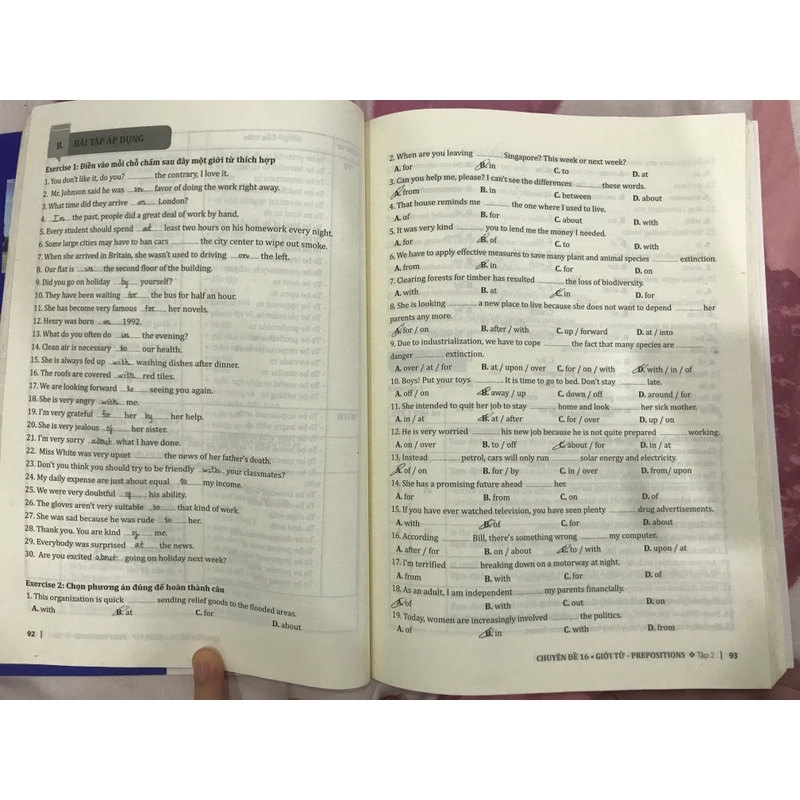 B. BÀI TẬP ÁP DỤNG
Exercise 1: Điền vào mỗi chỗ chấm sau đây một giới từ thích hợp
1. You don't like it, do you? ........ the contrary, I love it.
2. Mr. Johnson said he was in favor of doing the work right away.
3. What time did they arrive in London?
4. In the past, people did a great deal of work by hand.
5. Every student should spend at least two hours on his homework every night.
6. Some large cities may have to ban cars ........ the city center to wipe out smoke.
7. When she arrived in Britain, she wasn't used to driving on the left.
8. Our flat is in the second floor of the building.
9. Did you go on holiday by yourself?
10. They have been waiting for the bus for half an hour.
11. She has become very famous for her novels.
12. Henry was born in 1992.
13. What do you often do in the evening?
14. Clean air is necessary to our health.
15. She is always fed up with washing dishes after dinner.
16. The roofs are covered with red tiles.
17. We are looking forward to seeing you again.
18. She is very angry with me.
19. I'm very grateful for her by her help.
20. She is very jealous of her sister.
21. I'm very sorry about what I have done.
22. Miss White was very upset ........ the news of her father's death.
23. Don't you think you should try to be friendly with your classmates?
24. My daily expense are just about equal to my income.
25. We were very doubtful of his ability.
26. The gloves aren't very suitable to that kind of work.
27. She was sad because he was rude to her.
28. Thank you. You are kind of me.
29. Everybody was surprised at the news.
30. Are you excited about going on holiday next week?
Exercise 2: Chọn phương án đúng để hoàn thành câu
1. This organization is quick ........ sending relief goods to the flooded areas.
A. with B. at C. for D. about
92
2. When are you leaving ........ Singapore? This week or next week?
A. for B. in C. to D. at
3. Can you help me, please? I can't see the differences ........ these words.
A. from B. in C. between D. about
4. That house reminds me ........ the one where I used to live.
A. of B. for C. about D. with
5. It was very kind ........ you to lend me the money I needed.
A. for B. of C. to D. with
6. We have to apply effective measures to save many plant and animal species ........ extinction.
A. from B. in C. for D. on
7. Clearing forests for timber has resulted ........ the loss of biodiversity.
A. with B. at C. in D. for
8. She is looking ........ a new place to live because she does not want to depend ........ her
parents any more.
A. for / on B. after / with C. up / forward D. at / into
9. Due to industrialization, we have to cope ........ the fact that many species are ........
danger ........ extinction.
A. over / at / for B. at / upon / over C. for / on / with D. with / in / of
10. Boys! Put your toys ........ . It is time to go to bed. Don't stay ........ late.
A. off / on B. away / up C. down / off D. around / for
11. She intended to quit her job to stay ........ home and look ........ her sick mother.
A. in / at B. at / after C. for / over D. up / on
12. He is very worried ........ his new job because he is not quite prepared ........ working.
A. on / over B. to / off C. about / for D. in / at
13. Instead ........ petrol, cars will only run ........ solar energy and electricity.
A. of / on B. for / by C. in / over D. from/ upon
14. She has a promising future ahead ........ her.
A. for B. from C. on D. of
15. If you have ever watched television, you have seen plenty ........ drug advertisements.
A. with B. of C. for D. about
16. According ........ Bill, there's something wrong ........ my computer.
A. after / for B. on / about C. to / with D. upon / at
17. I'm terrified ........ breaking down on a motorway at night.
A. from B. with C. for D. of
18. As an adult, I am independent ........ my parents financially.
A. of B. with C. out D. on
19. Today, women are increasingly involved ........ the politics.
A. of B. in C. with D. from
CHUYÊN ĐỀ 16 • GIỚI TỪ - PREPOSITIONS ❖ Tập 2 | 93